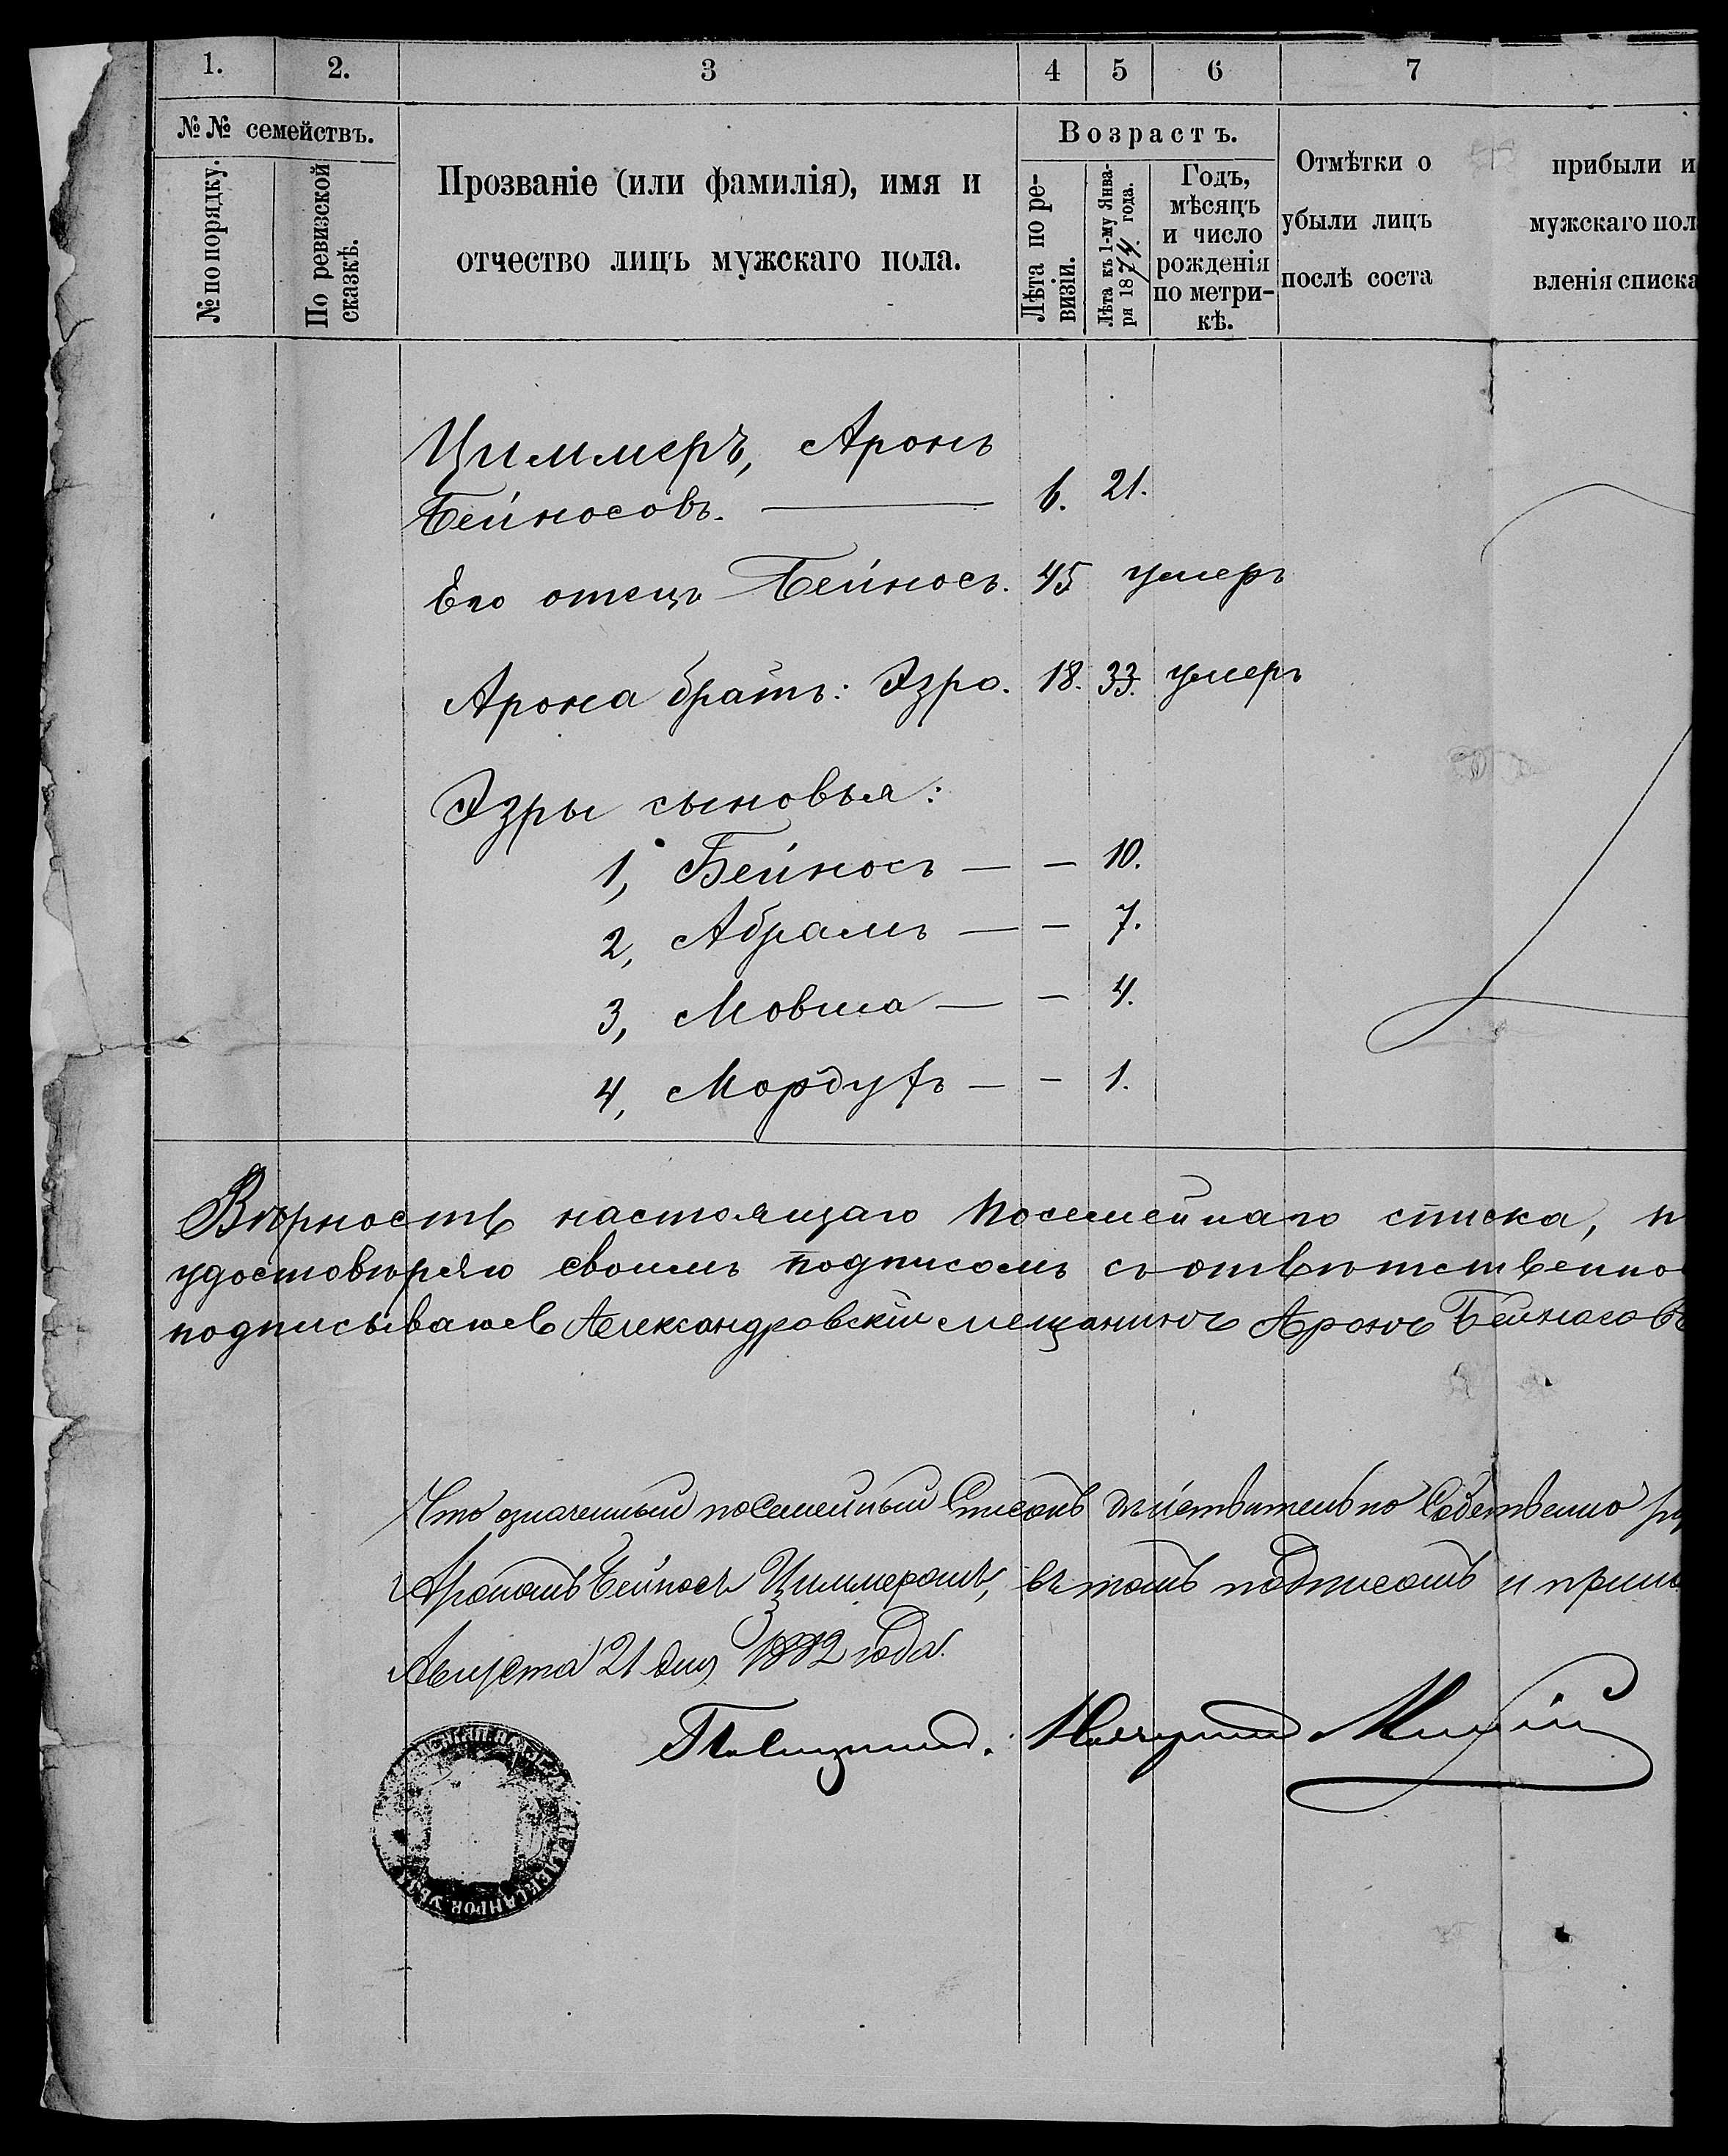 1. 2. 3 4 5 6 7
№№ семействъ.
№ по порядку.
По ревизской сказкѣ.
Прозваніе (или фамилія), имя и
отчество лицъ мужскаго пола.
Возрастъ.
Лѣта по ре-
визіи.
Лѣта къ 1-му Янва-
ря 1874 года.
Годъ,
мѣсяцъ
и число
рожденія
по метри-
кѣ.
Отмѣтки о прибыли и
убыли лицъ мужскаго пол
послѣ соста вленія списка
Циммеръ, Аронъ
Бейносовъ. 6. 21.
Его отецъ Бейносъ. 45 умеръ
Арона братъ: Эзро. 18. 33. умеръ
Эзры сыновья:
1, Бейносъ — — 10.
2, Абрамъ — — 7.
3, Мовша — — 4.
4, Мордухъ — — 1.
Вѣрность настоящаго посемейнаго списка, п
удостовѣряю своимъ подписомъ съ отвѣтственно
подписываюсь Александровскій мещанинъ Аронъ Бейносовъ
Что означенный посемейный Списокъ дѣйствительно Собственно ру
Арономъ Бейносъ Циммеромъ, въ томъ подписомъ и прило
Августа 21 дня 1882 года.